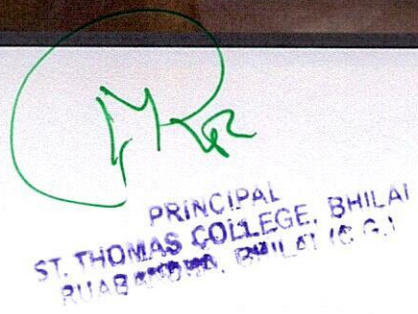 PRINCIPAL
ST. THOMAS COLLEGE, BHILAI
RUABANDHA, BHILAI (C.G.)